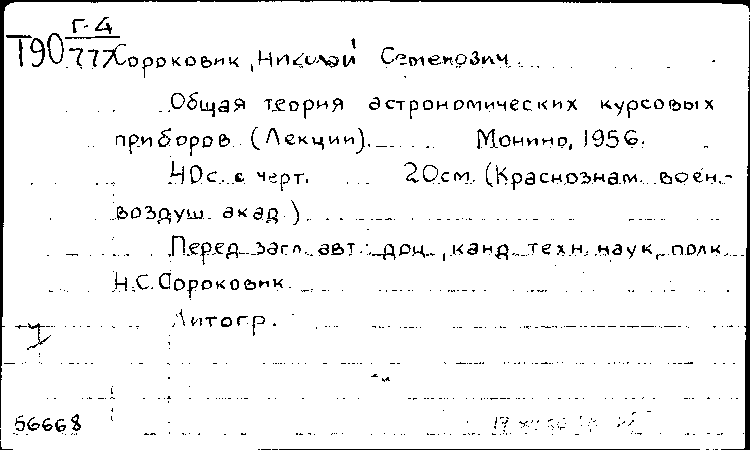 Г-4
Т90 777
Сороковик, Николай Семенович
Общая теория астрономических курсовых
приборов (Лекции). Монино, 1956.
40с. с черт. 20см. (Краснознам. воен.-
воздуш. акад.)
Перед загл. авт.: доц., канд. техн. наук, полк.
Н.С. Сороковик.
Литогр.
56668